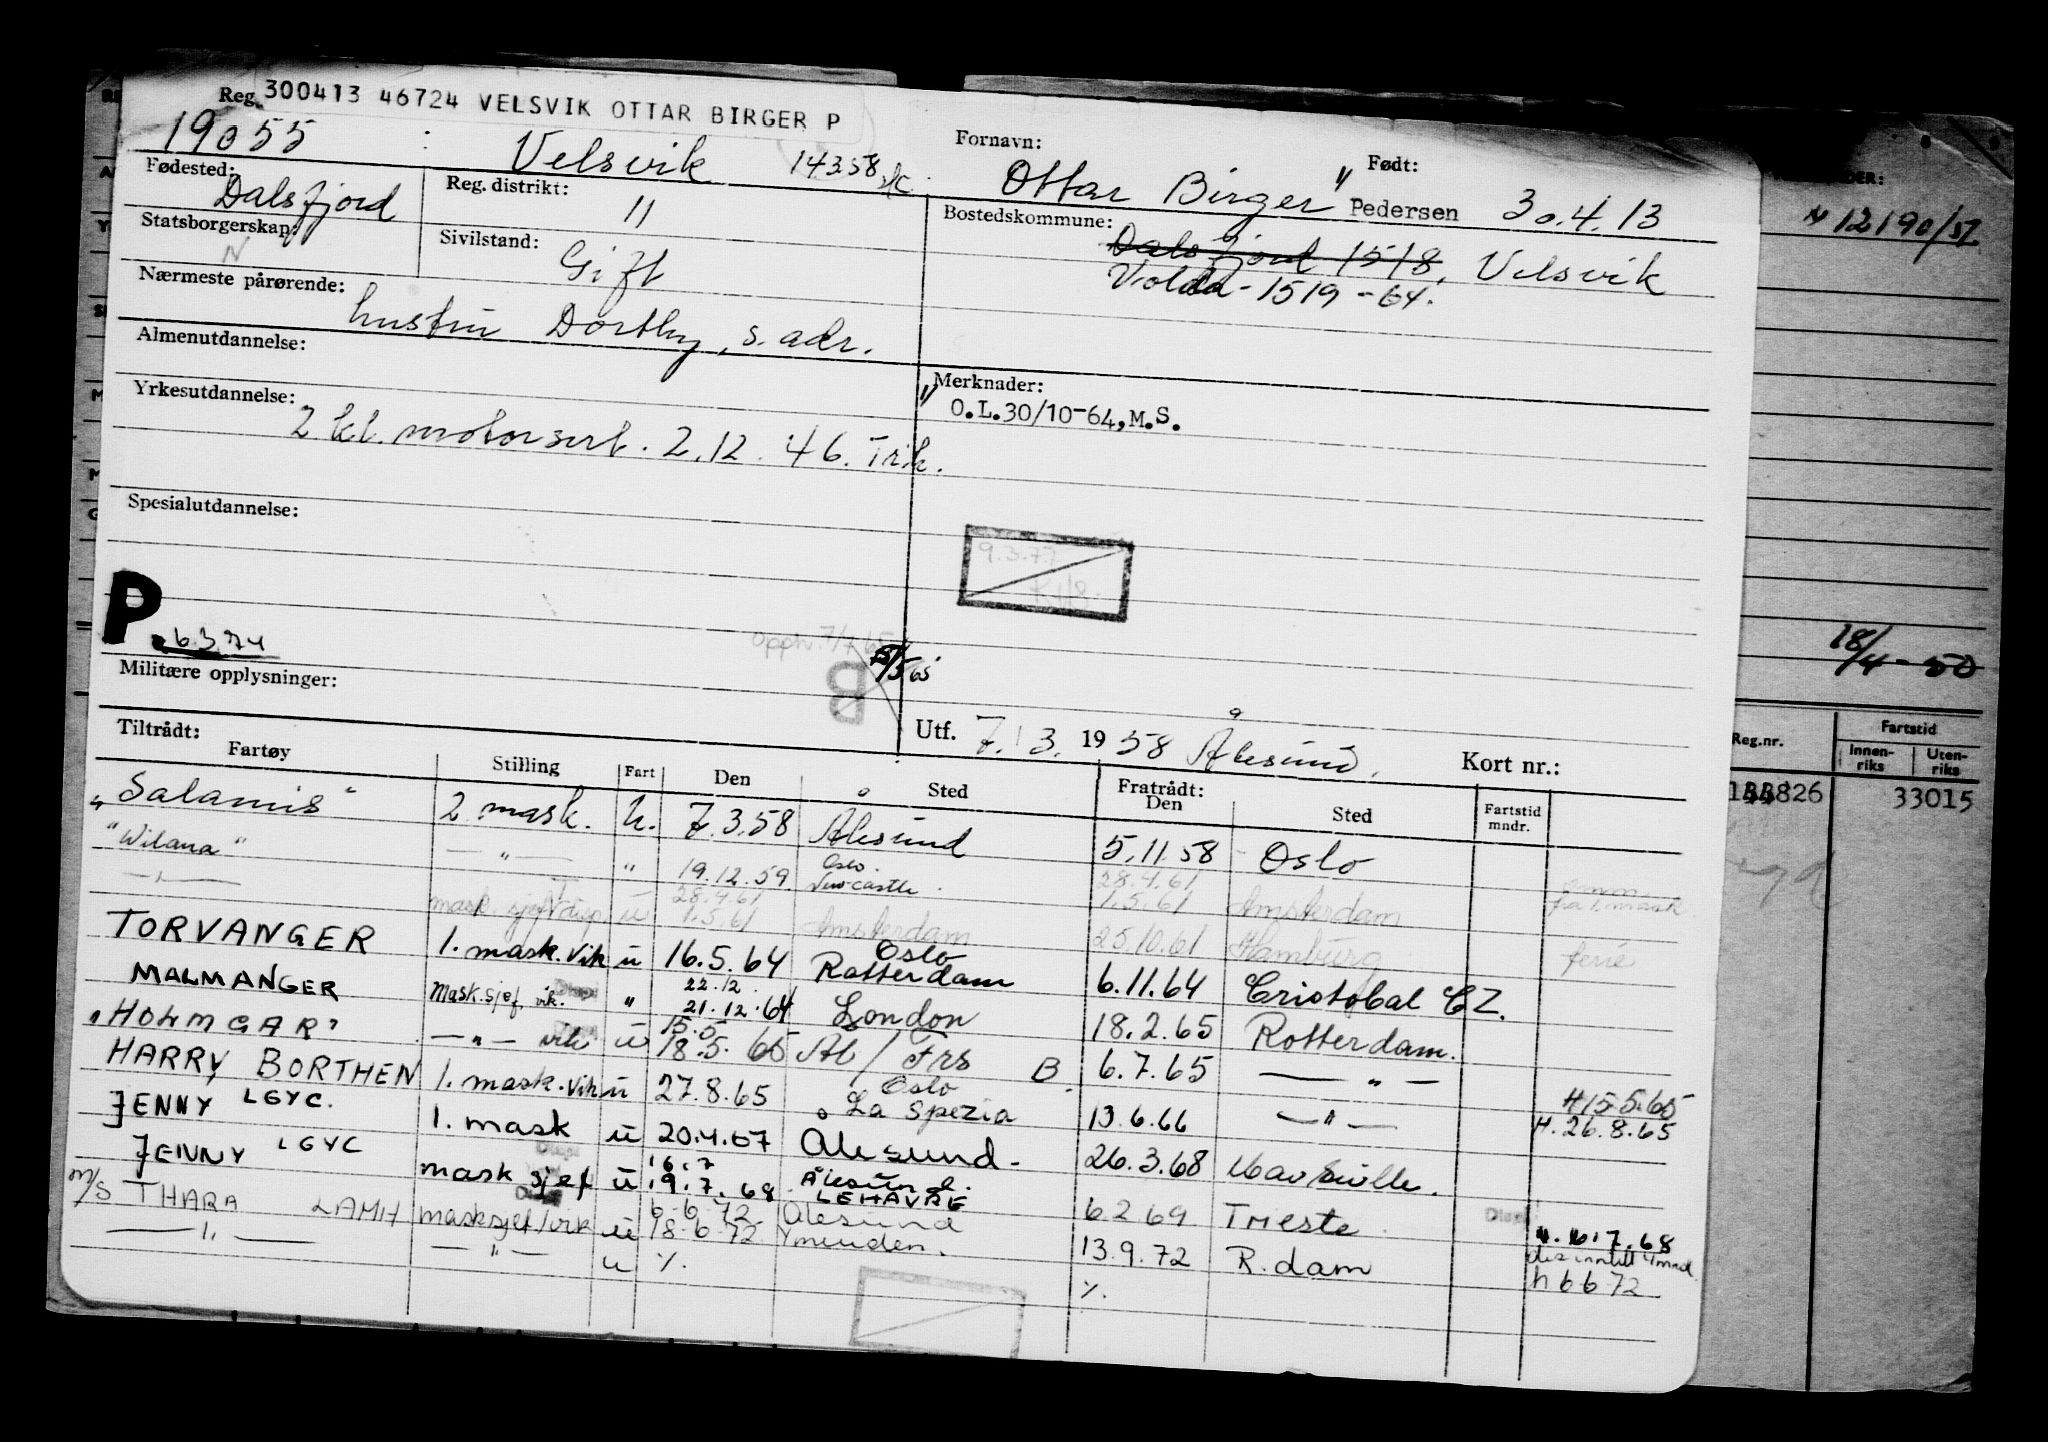 Reg. 300413 46724 VELSVIK OTTAR BIRGER P
19055 Velsvik 14358
Fornavn: Ottar Birger " Pedersen
Født: 30.4.13
Fødested: Dalsfjord
Reg. distrikt: 11
Bostedskommune: Dalsfjord 1518, Velsvik
Volda - 1519 - 64.
Statsborgerskap: N
Sivilstand: Gift
Nærmeste pårørende: hustru Dorthy, s. adr.
Almenutdannelse:
Yrkesutdannelse: 2 kl. motorsert. 2.12.46. Trh.
Merknader:
" O.L.30/10-64,M.S.
Spesialutdannelse:
9.3.77
P
6.3.74
opph. 7/7 65
/5 65
B
Militære opplysninger:
Utf. 7.3. 1958 Ålesund.
Kort nr.:
Tiltrådt: Fartøy Stilling Fart Den Sted Fratrådt: Den Sted Fartstid mndr.
"Salamis" 2 mask. u. 7.3.58 Ålesund 5.11.58 Oslo
"Wilana" — " — " 19.12.59 Oslo. Newcastle. 28.4.61
— " — 28.4.61 1.5.61 Amsterdam
mask. sjef disp. u 1.5.61 Amsterdam 25.10.61 Hamburg ferie
TORVANGER 1. mask. vik u 16.5.64 Oslo Rotterdam 6.11.64 Cristobal CZ.
MALMANGER Mask.sjef, vik. " 22.12 21.12.64 London 18.2.65 Rotterdam.
"HOLMGAR" — " — vik u 15.5 18.5.65 Al / Frs B. 6.7.65 — " — H 15.5.65
HARRY BORTHEN 1. mask. vik u 27.8.65 Oslo La Spezia 13.6.66 — " — H. 26.8.65
JENNY LGYC. 1. mask u 20.4.67 Ålesund. 26.3.68
JENNY LGYC mask sjef u 16.7 19.7.68 Ålesund. LEHAVRE 6.2.69 Trieste 7.68
m/s THARA LAMH masksjef/vik u 6.6.72 18.6.72 Ålesund Ymuiden. 13.9.72 R.dam h 6 6 72
— " — — " — u %. %.
N 12190/57
18/4-50
Reg.nr. Fartstid
Innen-riks Uten-riks
33015